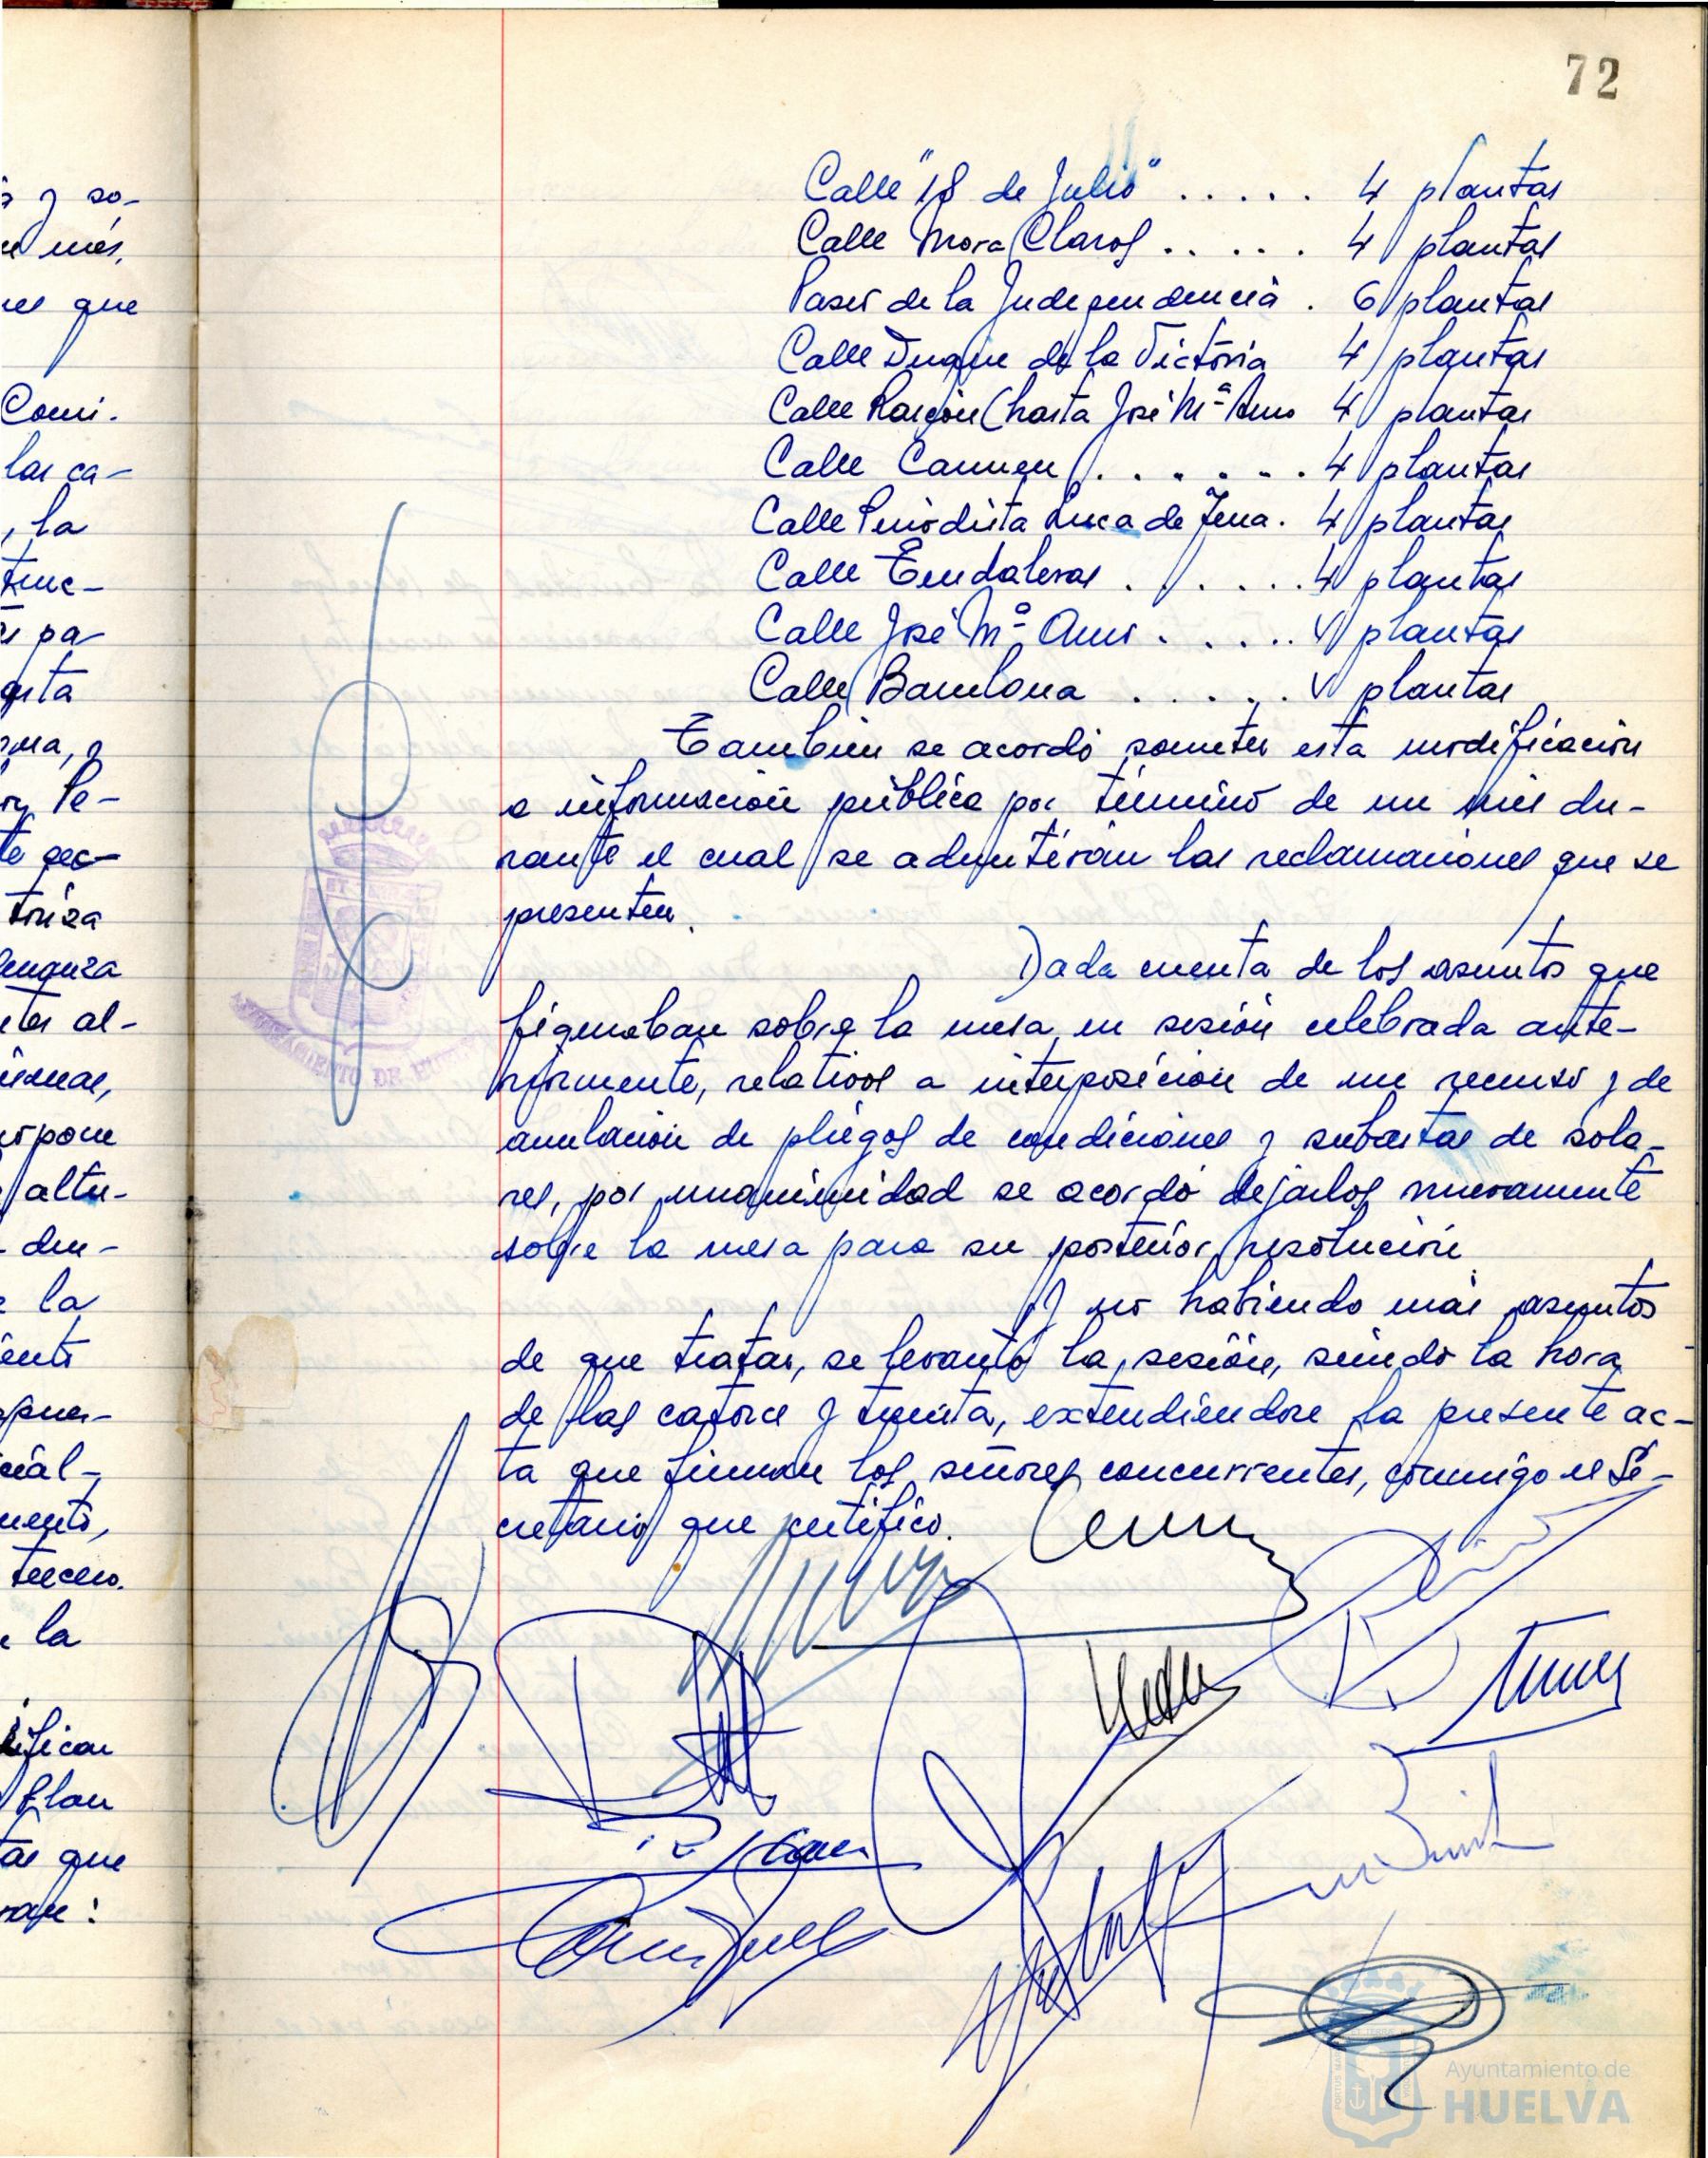 72
Calle "18 de Julio" ..... 4 plantas
Calle Mora Claros ..... 4 plantas
Paseo de la Independencia . 6 plantas
Calle Duque de la Victoria 4 plantas
Calle Rascón (hasta José Mª Amo 4 plantas
Calle Carmen ...... 4 plantas
Calle Periodista Luca de Tena. 4 plantas
Calle Tendaleras ..... 4 plantas
Calle José Mª Amo .... 4 plantas
Calle Barcelona ..... 4 plantas
También se acordó someter esta modificación
a información pública por término de un mes du-
rante el cual se admitirán las reclamaciones que se
presenten.
Dada cuenta de los asuntos que
figuraban sobre la mesa en sesión celebrada ante-
riormente, relativos a interposición de un recurso y de
anulación de pliegos de condiciones y subastas de sola-
res, por unanimidad se acordó dejarlos nuevamente
sobre la mesa para su posterior resolución.
Y no habiendo más asuntos
de que tratar, se levantó la sesión, siendo la hora
de las catorce y treinta, extendiéndose la presente ac-
ta que firman los señores concurrentes, conmigo el Se-
cretario que certifico.
y so-
que
Comi.
las ca-
, la
pa-
Pe-
al-
altu-
la
tercero.
la
Plan
que
AYUNTAMIENTO DE HUELVA
Ayuntamiento de
HUELVA